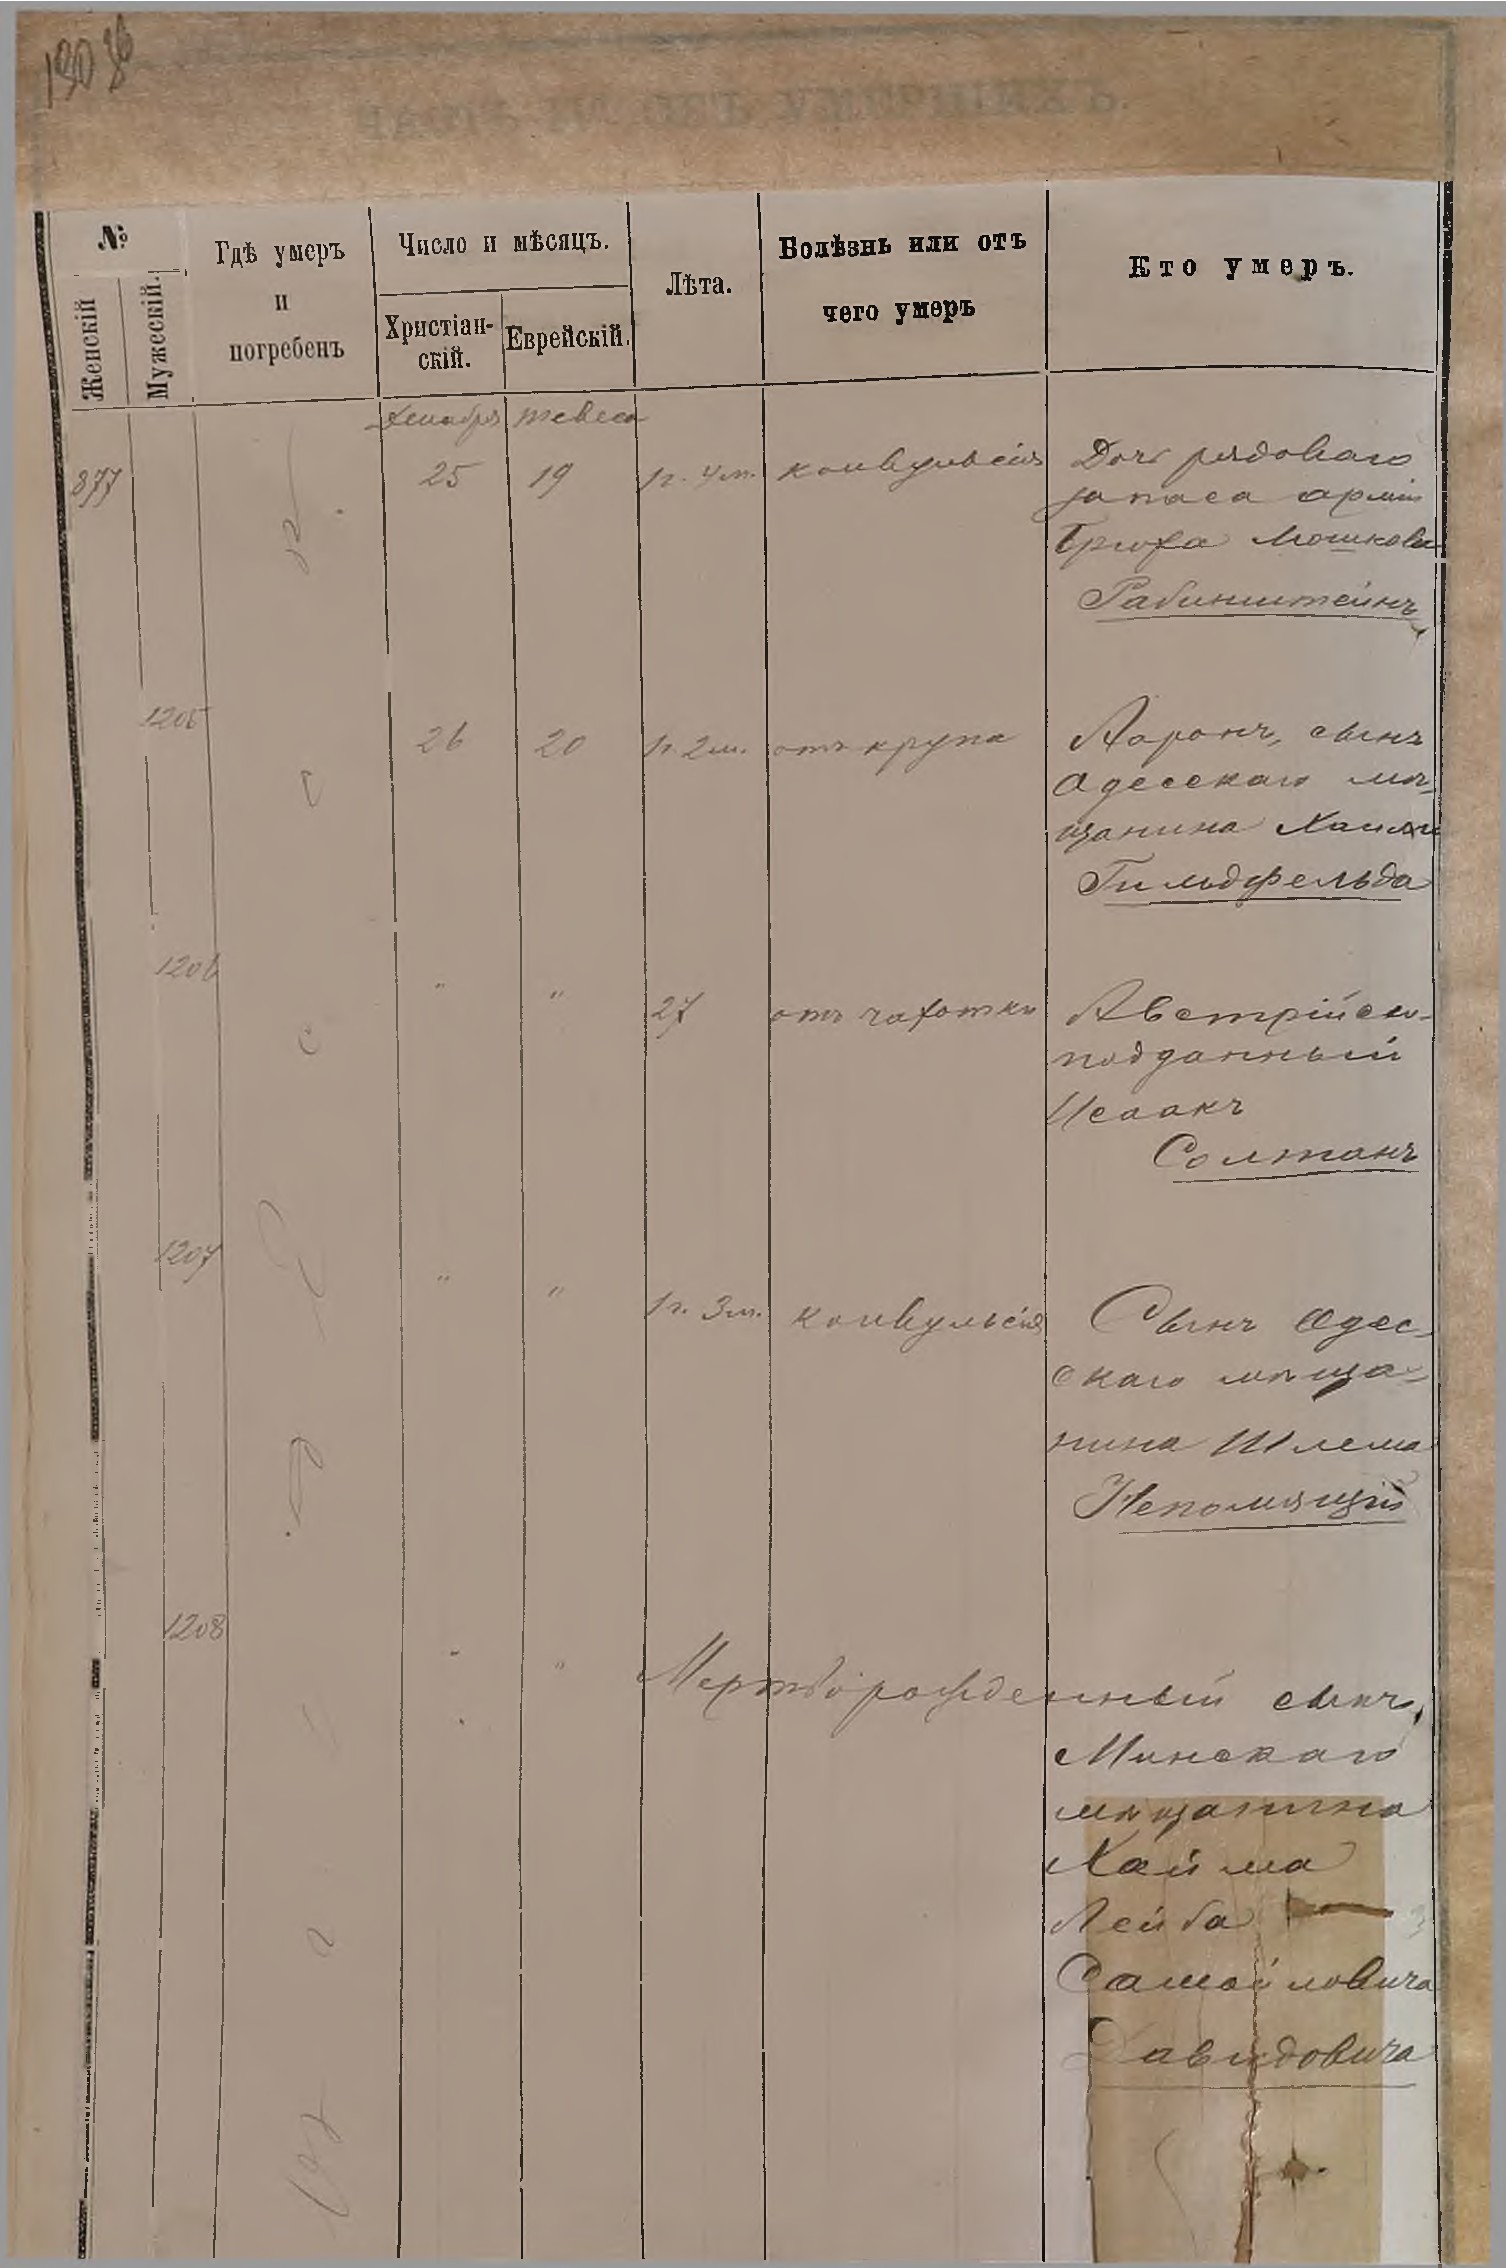 ЧАСТЬ III ОБЪ УМЕРШИХЪ.
№
Женскій
Мужескій.
Гдѣ умеръ
и
погребенъ
Число и мѣсяцъ.
Христіан-
скій.
Еврейскій.
Лѣта.
Болѣзнь или отъ
чего умеръ
Кто умеръ.
Декабря Тевеса
877 25 19 1 г. 4 м. конвульсія Дочь рядоваго
запаса арміи
Мошкова
Рабинштейнъ
1205 26 20 1 г. 2 м. отъ крупа Ааронъ, сынъ
Одесскаго мѣ-
щанина Хаима
Гильдфельда
1206 " " 27 отъ чахотки Австрійско-
подданный
Исаакъ
Солтанъ
1207 " " 1 г. 3 м. конвульсія Сынъ Одес-
скаго мѣща-
нина Шлема
Непомящій
1208 " " Мертворожденный сынъ
Минскаго
мѣщанина
Хаима
Лейба
Самойловича
Давидовича